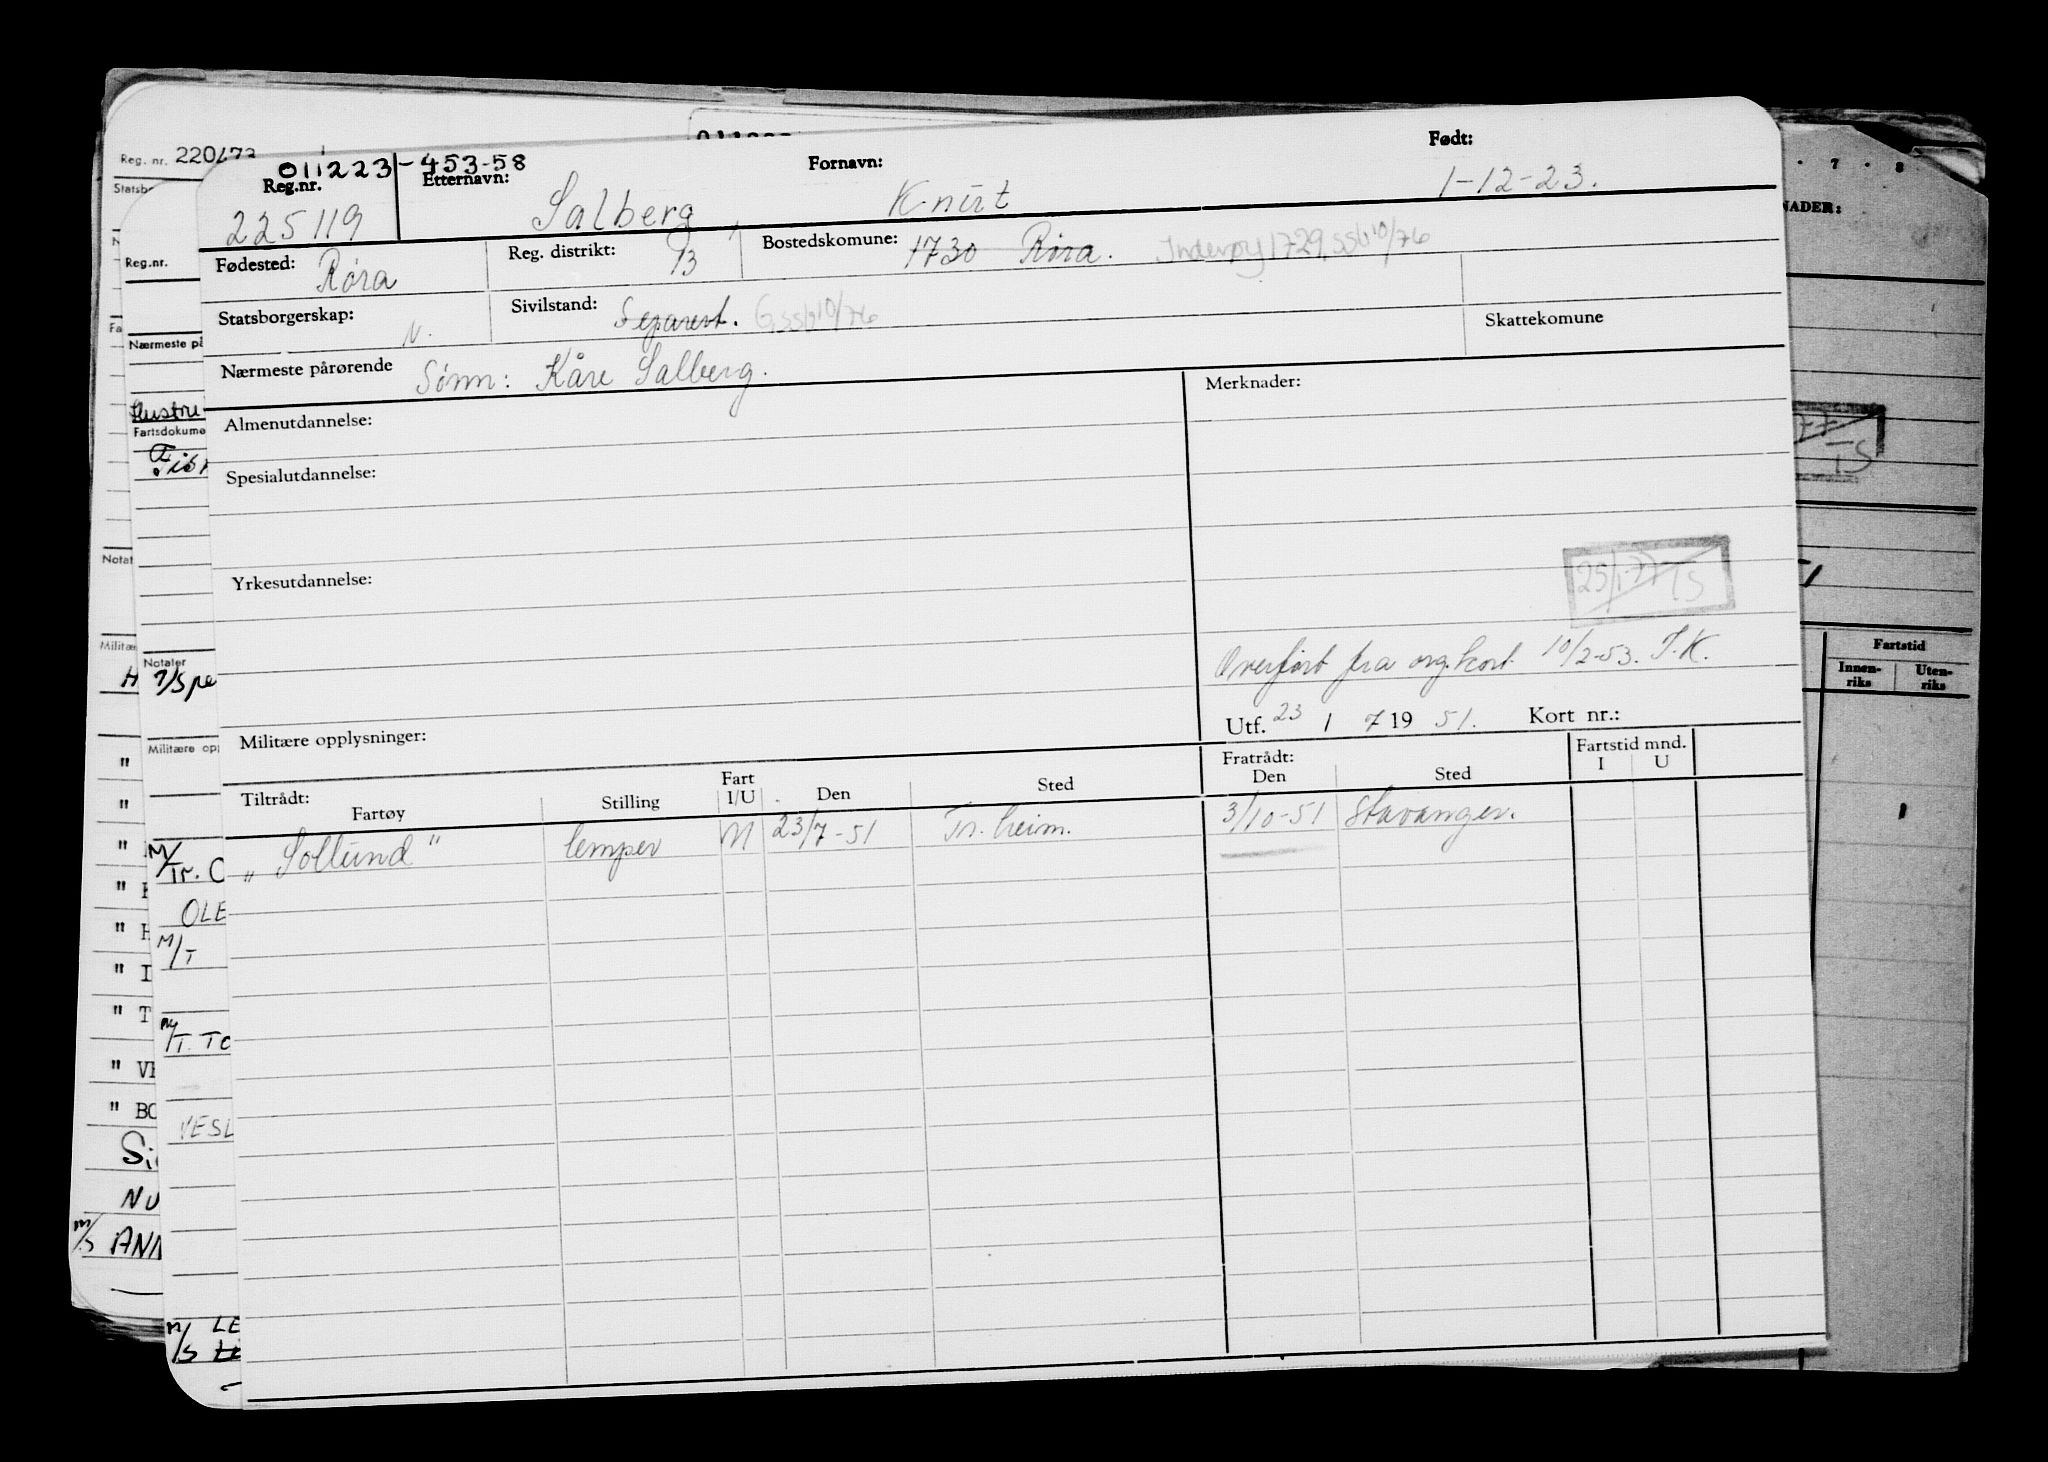 011223-453-58
Reg.nr. Etternavn: Fornavn: Født:
225119 Salberg, Knut 1-12-23.
Fødested: Røra Reg. distrikt: 13 Bostedskomune: 1730 Røra. Inderøy 1729, SSb 10/76
Statsborgerskap: N. Sivilstand: Separert. G, SSb 10/76 Skattekomune
Nærmeste pårørende Sønn: Kåre Salberg.
Almenutdannelse: Merknader:
Spesialutdannelse:
Yrkesutdannelse:
25/1-77 TS
Overført fra org.kort 10/2-53. T.K.
Utf. 23 / 7 19 51. Kort nr.:
Militære opplysninger:
Tiltrådt: Fratrådt: Fartstid mnd.
Fartøy Stilling Fart I/U Den Sted Den Sted I U
"Sollund" lemper M 23/7-51 Tr.heim. 3/10-51 Stavanger.
Reg. nr. 220673
Reg.nr.
Nærmeste på
Hustru
Fartsdokume
Notat
Notater
7/Spe
Militære opp
M/Tr. C
OLE
M/T
M/T. TO
VESL
M/S LE
" VE
" BO
NU
M/S ANN
7 · 8
NADER:
77 TS
Fartstid
Innen-riks Uten-riks